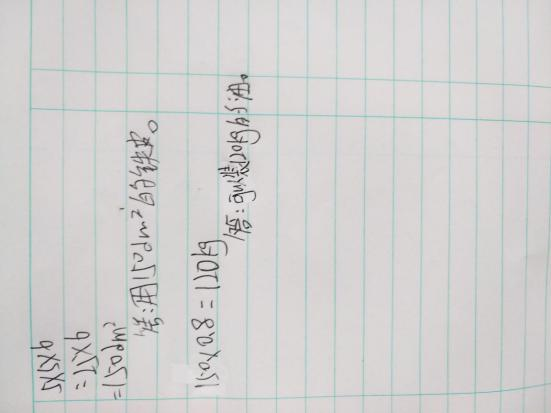 5×5×6
=25×6
=150dm²
答:用150dm²的铁皮。
150×0.8=120kg
答:可以装120kg的汽油。